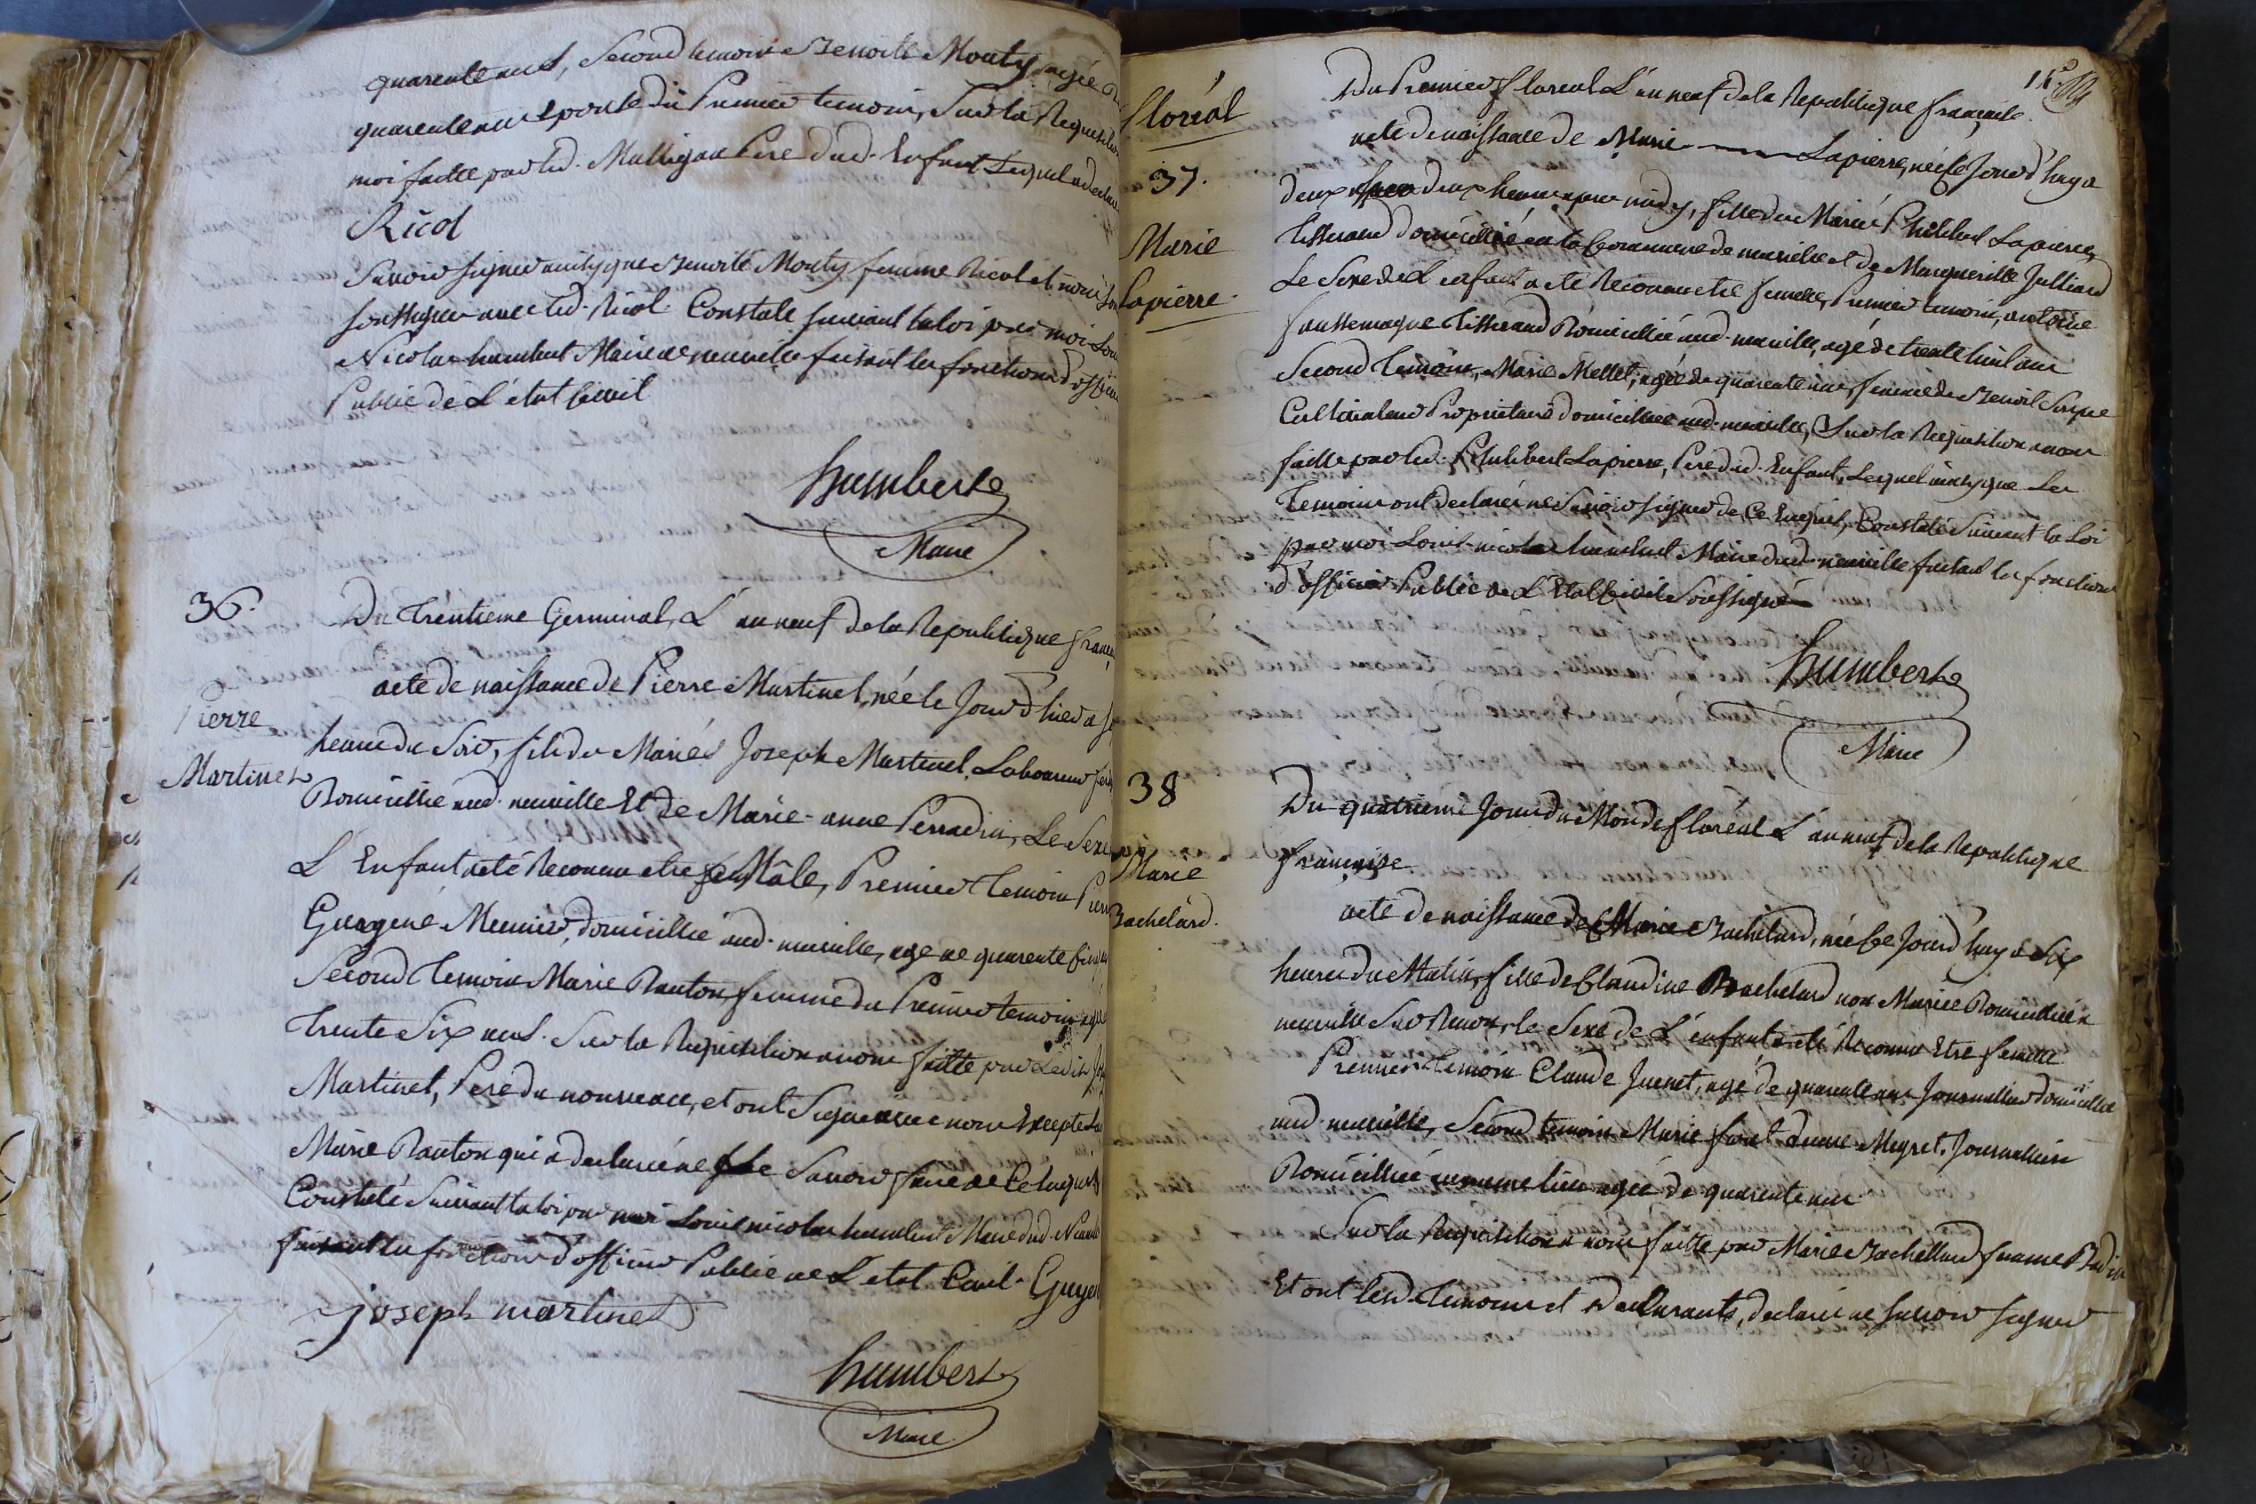 quarente ans, Second temoin Benoite Monty agée de
quarente ans Epouse du Premier temoin, Sur la Requisition
moi faitte par led. Malligau Pere dud. Enfant Lequel a declaré
Ricol
Savoir signer ainsy que Benoite Monty femme Ricol et nous
soussigné avec led. Ricol. Constaté suivant la loi par moi Louis
Nicolas humbert Maire de neuville faisant les fonctions d'officier
Public de L'état Civil
humbert
Maire
36.
Pierre
Martinet
Du trentieme Germinal, L'an neuf de la Republique française
acte de naissance de Pierre Martinet, née le Jour d'hier a
heure du Soir, fils de Mariés Joseph Martinet Laboureur
Domicillié aud. neuville Et de Marie-anne Perradin, Le Sexe
L'Enfant a eté Reconnu etre Mâle, Premier temoin Pierre
Guegené Meunier, domicillié aud. neuville, age de quarente cinq
Second temoin Marie Ranton femme du Premier temoin agée
trente Six ans. Sur la Requisition a nous faitte par Ledit
Martinet, Pere du nouveau, et ont Signé avec nous Excepté La
Marie Ranton qui a declaré ne Savoir faire de Ce Enquis
Constaté Suivant la loi par moi Louis nicolas humbert Maire dud. Neuville
faisant les fonctions d'officier Public de L'etat Civil. Guyen
joseph martinet
humbert
Maire
floréal
37.
Marie
Lapierre
Du Premier floreal L'an neuf de la Republique française
acte de naissance de Marie Lapierre, née Ce Jourd'huy a
deux heures apres midy, fille des Mariés Philibert Lapierre,
tisserand domicillié en la Commune de neuville et de Marguerite Julliard
Le Sexe de L'enfant a eté Reconnu etre femelle, Premier temoin, antoine
faussemagne tisserand Domicillié aud. neuville, agé de trente huit ans
Second temoin, Marie Mellet, agée de quarente ans, femme de Benoit
Cultivateur Proprietaire domicilliée aud. neuville, Sur la Requisition a nous
faitte par led. Philibert Lapierre, Pere dud. Enfant, Lequel ainsy que Les
temoins ont declarés ne Savoir signer de Ce Enquis, Constaté Suivant la Loi
par moi Louis-nicolas humbert Maire dud. neuville faisant les fonctions
d'officier Public de L'Etat Civil Soussigné
humbert
Maire
38
Marie
Bachelard.
Du quatrieme Jour du Mois de floréal L'an neuf de la Republique
française.
acte de naissance de Marie Bachelard, née Ce Jourd'huy a Six
heures du Matin, fille de Claudine Bachelard non Mariée Domicilliée a
neuville Sur Renon, le Sexe de L'enfant a eté Reconnu Etre femelle
Premier temoin Claude Juenet, agé de quarente ans Journallier domicillié
aud. neuville, Second temoin Marie furet Meyret, Journalliere
Domicilliée au meme lieu agée de quarente ans
Sur la Requisition a nous faitte par Marie Bachellard femme
Et ont lesd. temoins et Declarants, declaré ne savoir signer